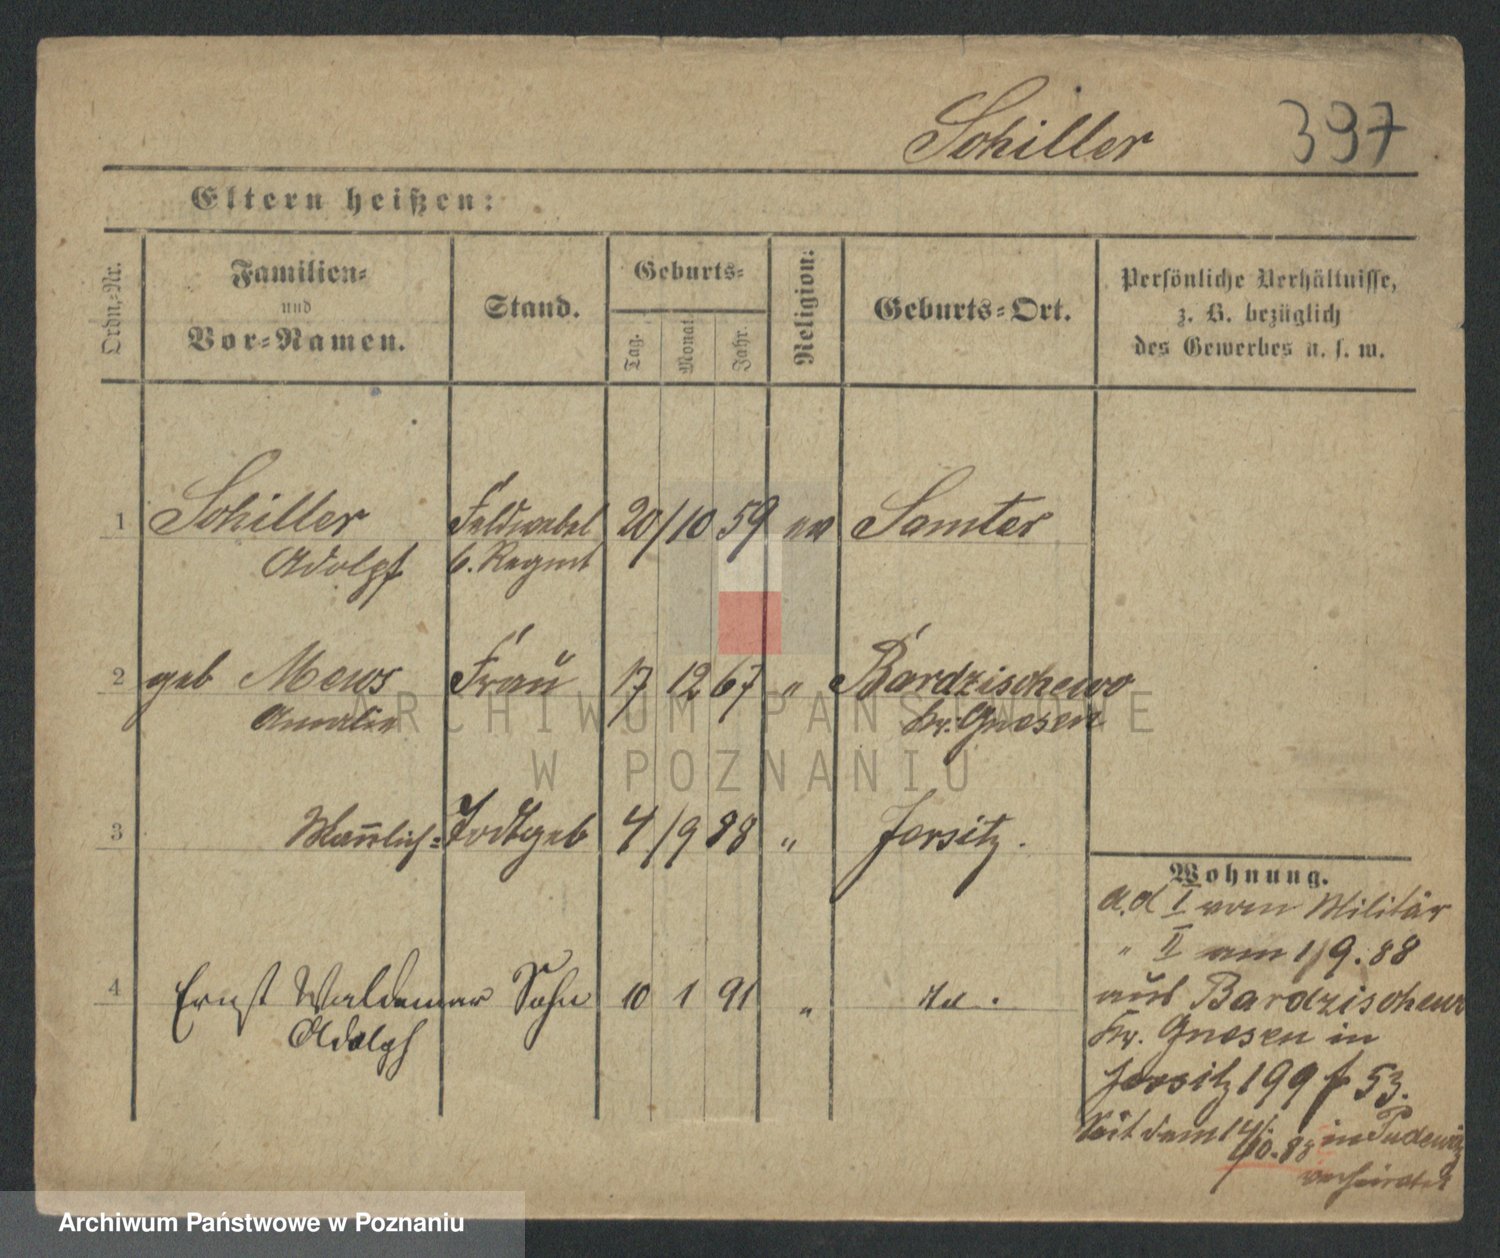 Schiller 397
Eltern heißen:
Ordn.-Nr.
Familien-
und
Vor-Namen.
Stand.
Geburts-
Tag.
Monat
Jahr.
Religion:
Geburts-Ort.
Persönliche Verhältnisse,
z. B. bezüglich
des Gewerbes u. s. w.
1 Schiller Feldwebel 20/10 59 ev Samter
Adolph 6. Regmt
2 geb Mews Frau 17 12 67 " Bardzischewo
Amalie Kr. Gnesen
3 Mannlich= Todtgeb 4/9 88 " Jersitz.
4 Ernst Waldemar Sohn 10 1 91 "
Adolph
Wohnung.
a. d I vom Militär
" II am 1/9. 88
aus Bardzischewo
Kr. Gnesen in
Jersitz 199 f 53.
Seit dem 14/10. 88 in Pudewitz
verheiratet
ARCHIWUM PAŃSTWOWE
W POZNANIU
Archiwum Państwowe w Poznaniu